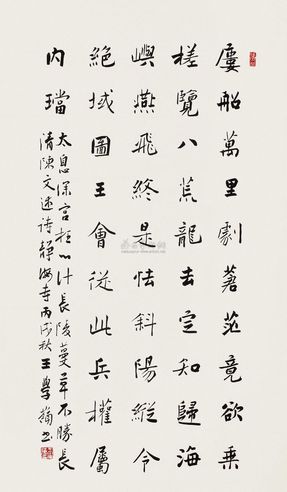 廔船萬里劇蒼茫竟欲乘
槎覽八荒龍去定知歸海
嶼燕飛終是怯斜陽縱令
絕域圖王會從此兵權屬
內璫
太息深宮枉心計長陵蔓草不勝長
清陳文述詩靜海寺丙戌秋王學書